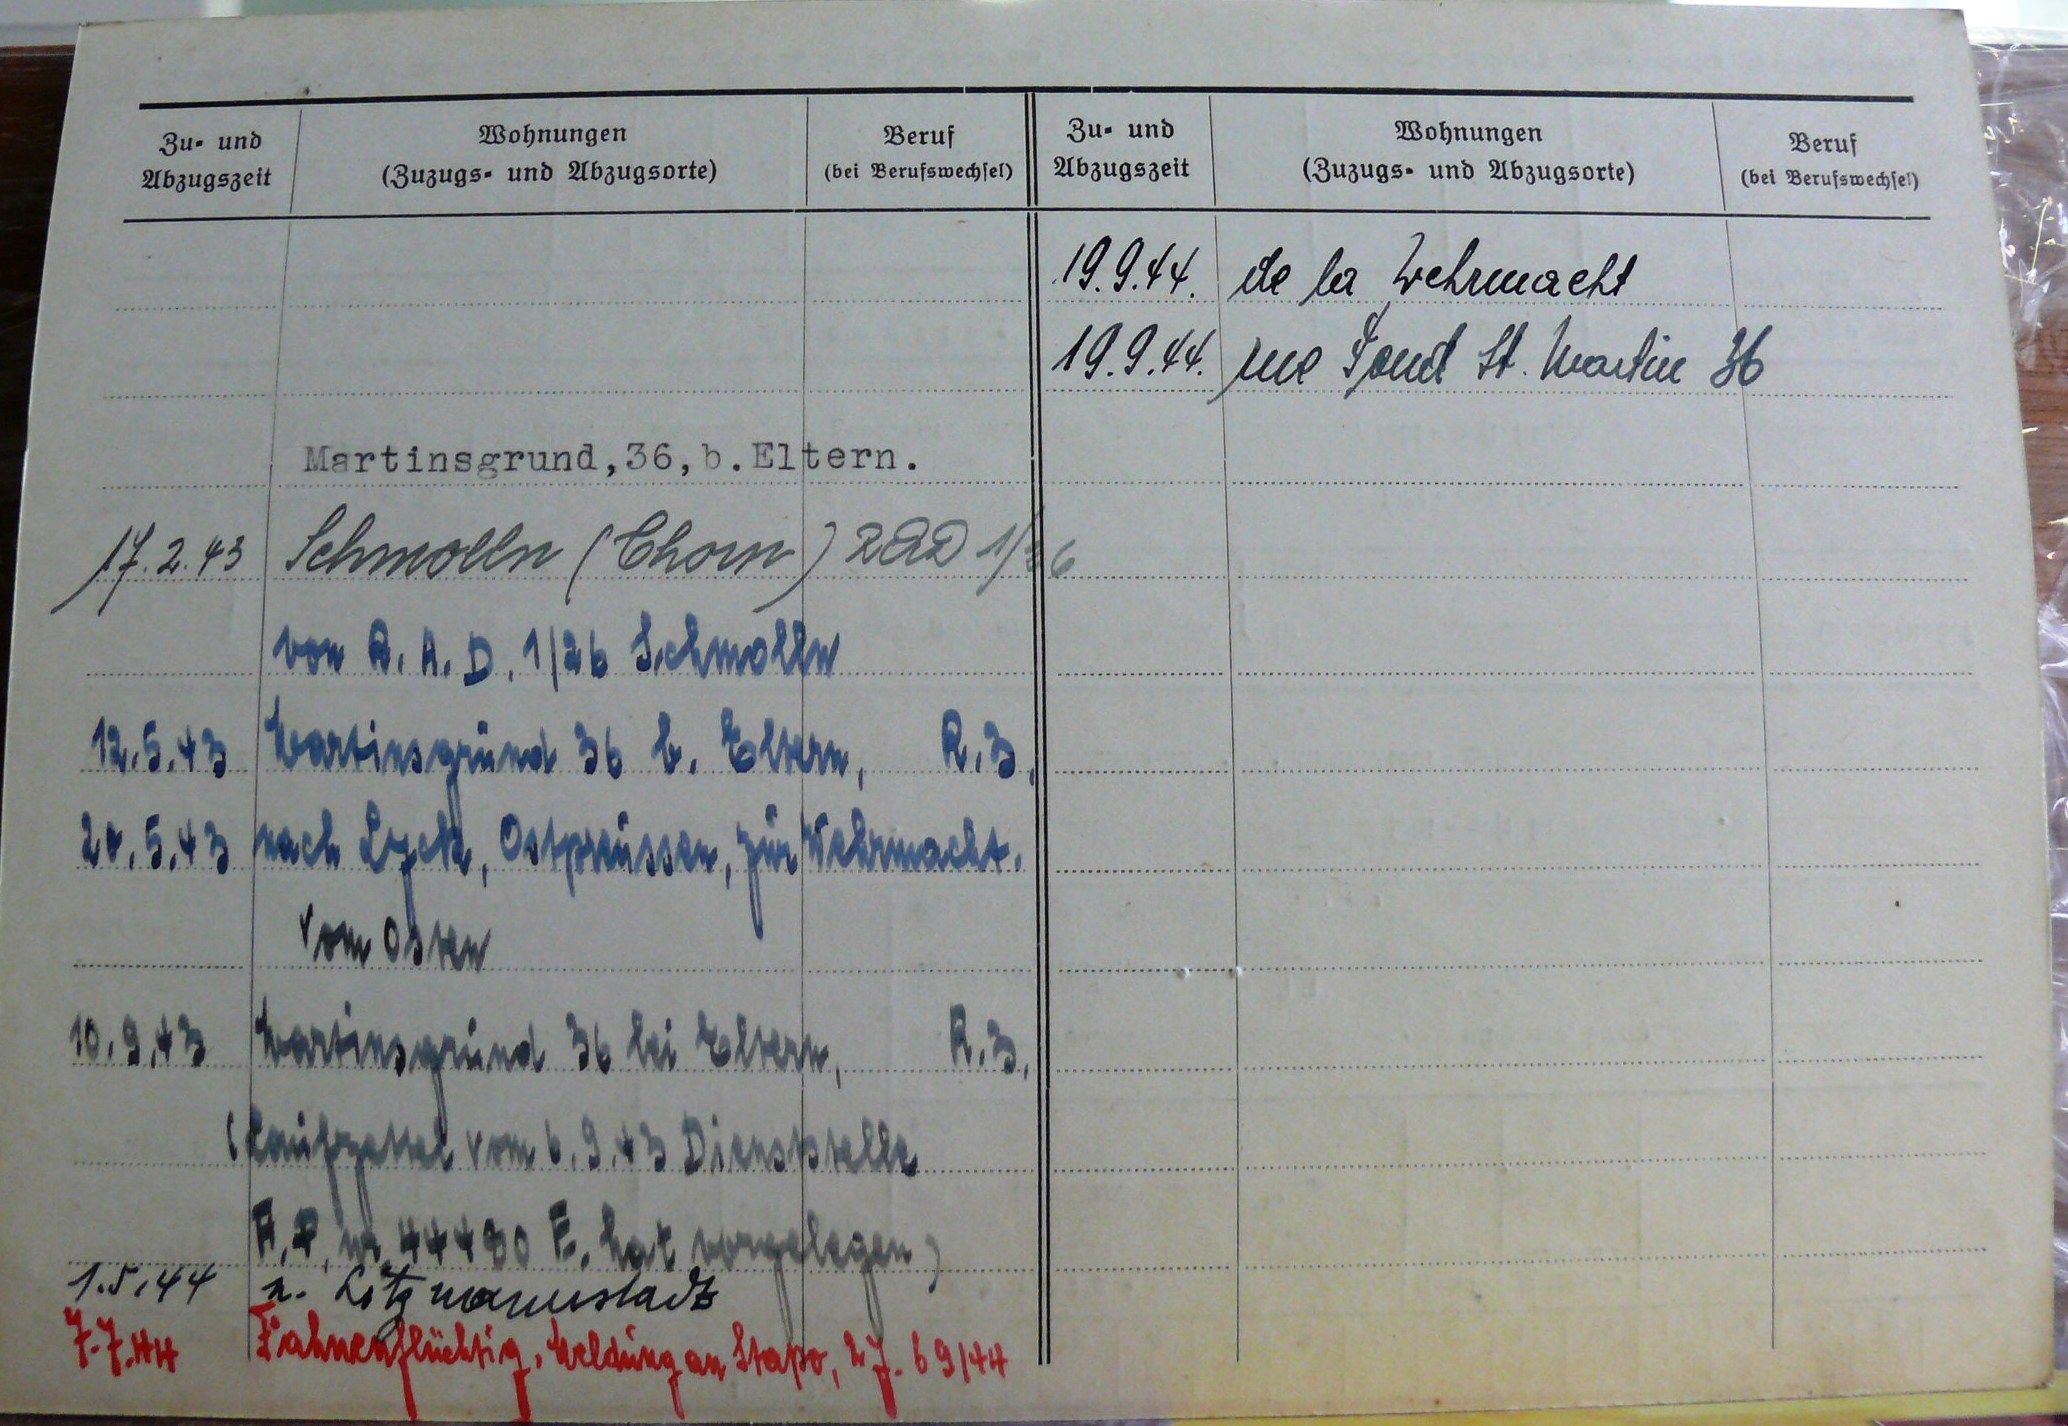 Zu- und Abzugszeit
Wohnungen
(Zuzugs- und Abzugsorte)
Beruf
(bei Berufswechsel)
Martinsgrund,36,b.Eltern.
17.2.43 Schmolln (Thorn) RAD 1/26
von R.A.D. 1/26 Schmolln
12.5.43 Martinsgrund 36 b. Eltern, R.Z.
20.5.43 nach Lyck, Ostpreussen, zur Wehrmacht.
vom Osten
10.9.43 Martinsgrund 36 bei Eltern, R.Z.
(Laufzettel vom 6.9.43 Dienststelle
F.P. nr. 44480 E. hat vorgelegen)
1.5.44 n. Litzmannstadt
7.7.44 Fahnenflüchtig, Meldung an Stapo, 27. 69/44
Zu- und Abzugszeit
Wohnungen
(Zuzugs- und Abzugsorte)
Beruf
(bei Berufswechsel)
19.9.44. de la Wehrmacht
19.9.44. rue Fond St. Martin 36